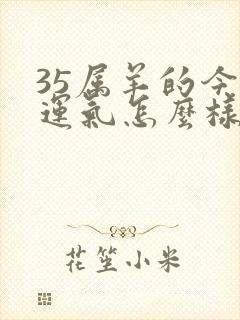 35属羊的今
運氣怎麼樣
花笙小米